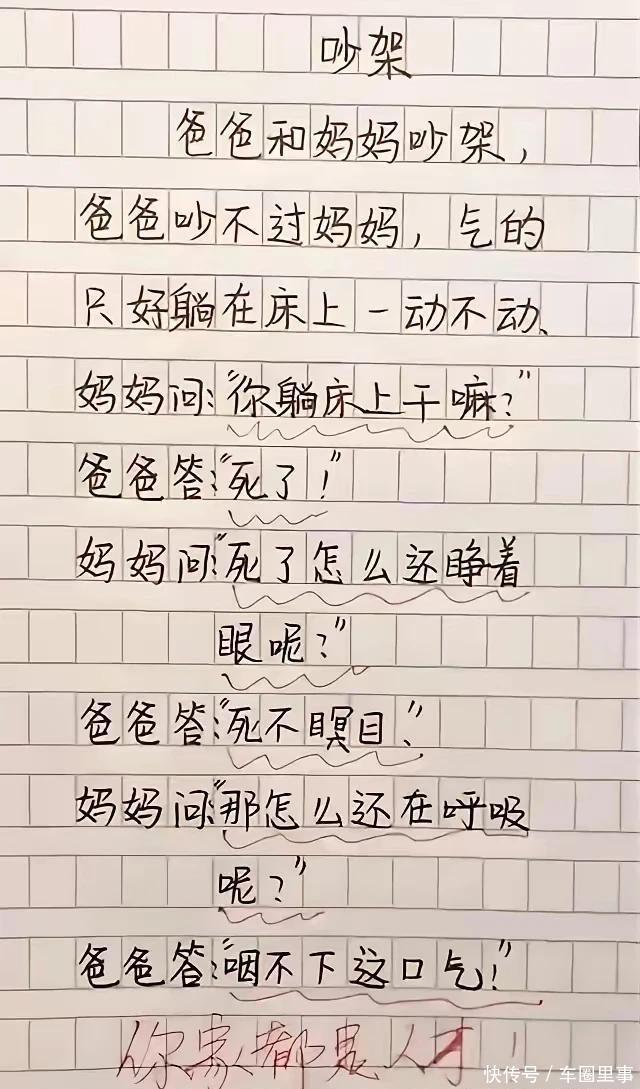 吵架
爸爸和妈妈吵架，
爸爸吵不过妈妈，气的
只好躺在床上一动不动、
妈妈问：“你躺床上干嘛？”
爸爸答：“死了！”
妈妈问：“死了怎么还睁着
眼呢？”
爸爸答：“死不瞑目！”
妈妈问：“那怎么还在呼吸
呢？”
爸爸答：“咽不下这口气！”
你家都是人才！
快传号／车圈里事